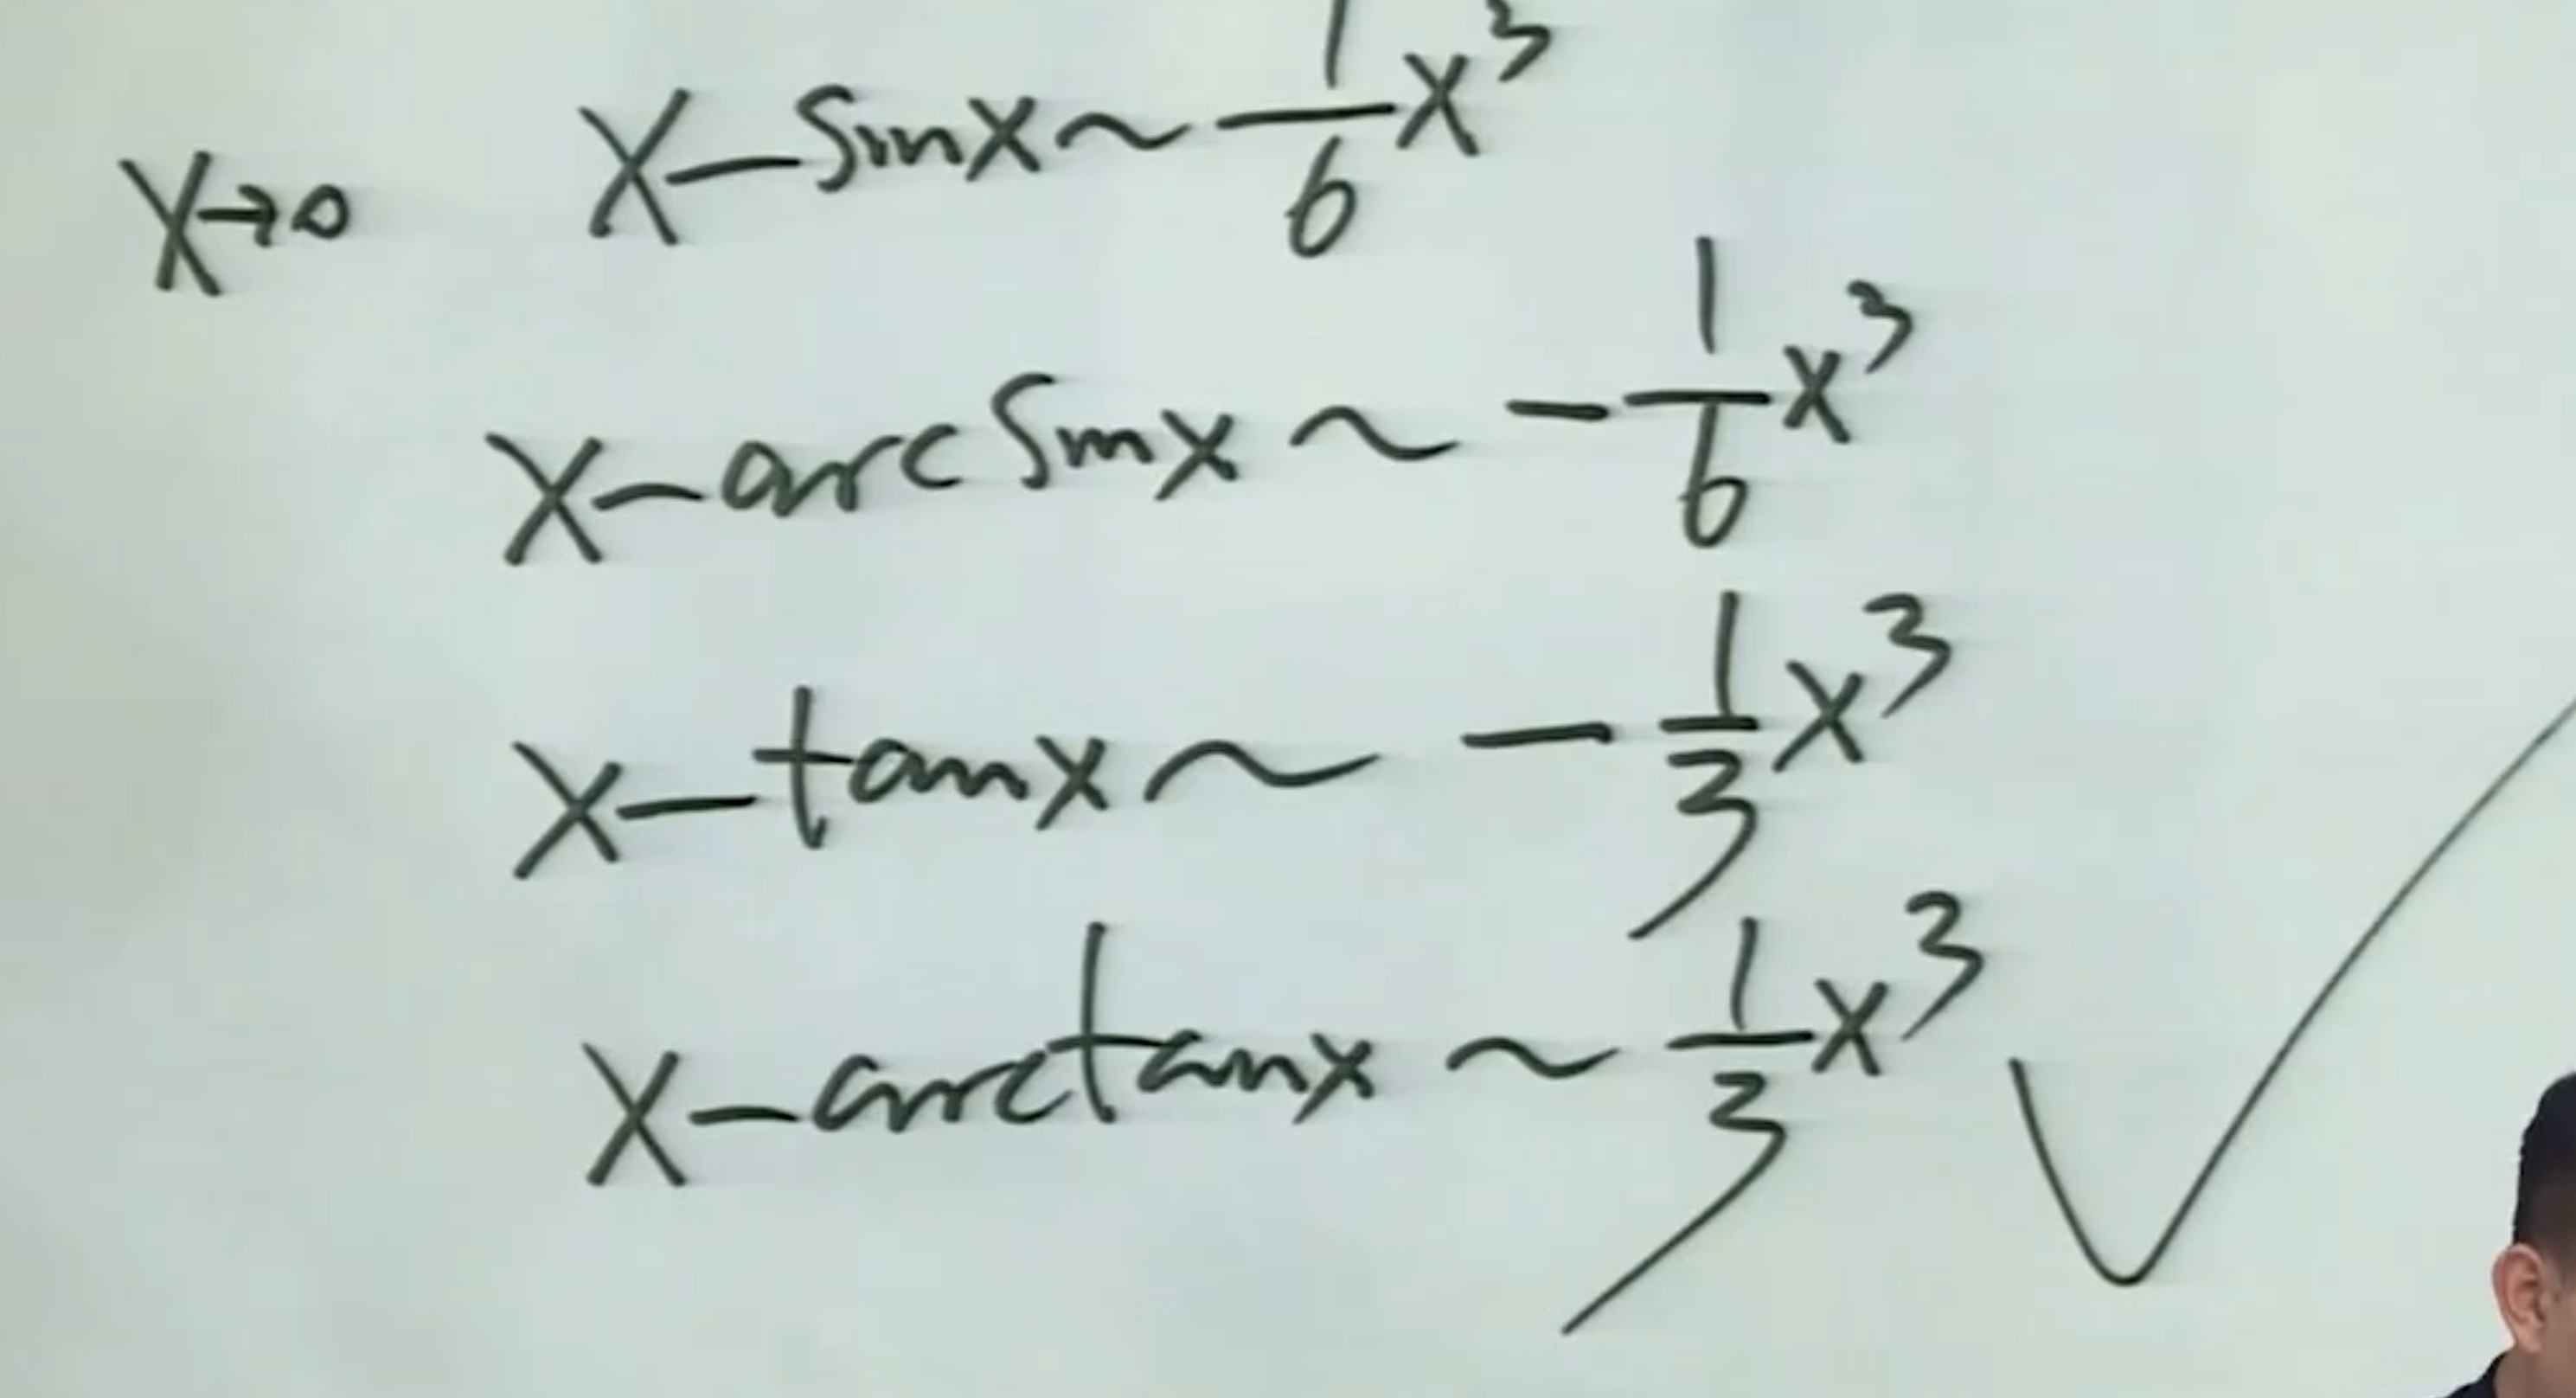 x→0
x-sinx~1/6 x³
x-arcsinx~-1/6 x³
x-tanx~-1/3 x³
x-arctanx~1/3 x³